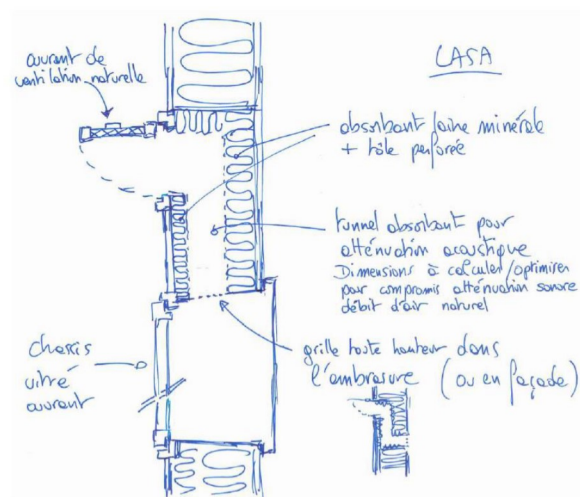 ouvrant de
ventilation naturelle
CASA
absorbant laine minérale
+ tôle perforée
tunnel absorbant pour
atténuation acoustique
Dimensions à calculer/optimiser
pour compromis atténuation sonore
débit d'air naturel
grille toute hauteur dans
l'embrasure (ou en façade)
chassis
vitré
ouvrant